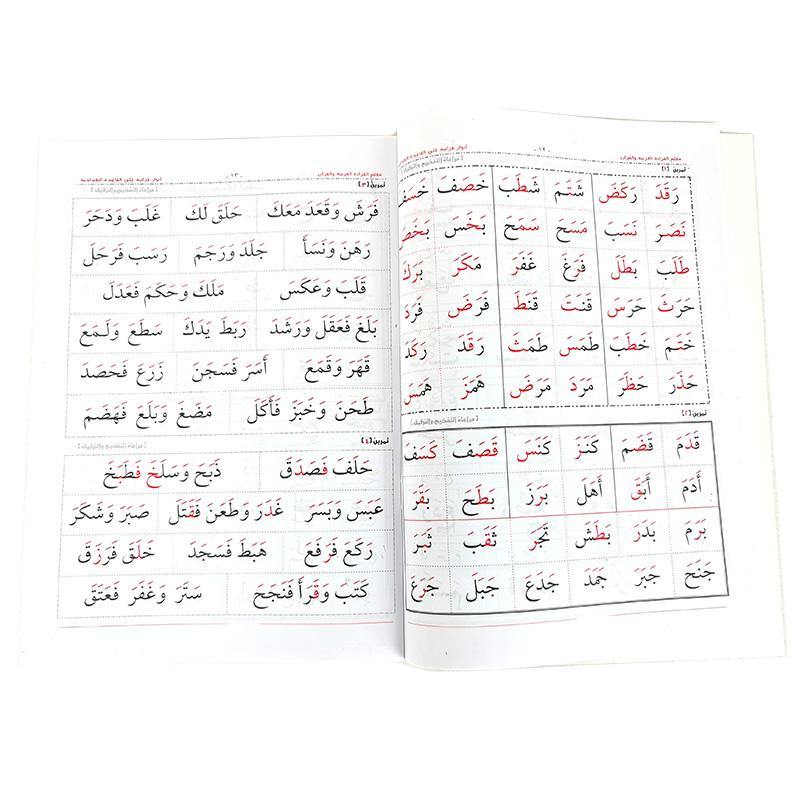 معلم القراءة العربية والقرآن
- ١٢ -
تمرين [١]
[مراعاة التفخيم والترقيق]
رَقَدَ رَكَضَ شَتَمَ شَطَبَ خَصَفَ خَسَفَ
نَصَرَ نَسَبَ مَسَحَ سَمَحَ بَخَسَ بَخَصَ
طَلَبَ بَطَلَ فَرَغَ غَفَرَ مَكَرَ بَرَكَ
حَرَثَ حَرَسَ قَنَتَ قَنَطَ فَرَضَ فَرَدَ
خَتَمَ خَطَبَ طَمَسَ طَمَثَ رَقَدَ رَكَدَ
حَذَرَ حَظَرَ مَرَدَ مَرَضَ هَمَزَ هَمَسَ
تمرين [٢]
[مراعاة التفخيم والترقيق]
قَدَمَ قَضَمَ كَنَزَ كَنَسَ قَصَفَ كَسَفَ
أَدَمَ أَبَقَ أَهَلَ بَرَزَ بَطَحَ بَقَرَ
بَرَمَ بَدَرَ بَطَشَ تَجَرَ ثَقَبَ ثَبَرَ
جَنَحَ جَبَرَ جَمَدَ جَدَعَ جَبَلَ جَرَعَ
معلم القراءة العربية والقرآن
- ١٣ -
تمرين [٣]
[مراعاة التفخيم والترقيق]
فَرَشَ وَقَعَدَ مَعَكَ حَلَقَ لَكَ غَلَبَ وَدَحَرَ
رَهَنَ وَنَسَأَ جَلَدَ وَرَجَمَ رَسَبَ فَرَحَلَ
قَلَبَ وَعَكَسَ مَلَكَ وَحَكَمَ فَعَدَلَ
بَلَغَ فَعَقَلَ وَرَشَدَ رَبَطَ يَدَكَ سَطَعَ وَلَمَعَ
قَهَرَ وَقَمَعَ أَسَرَ فَسَجَنَ زَرَعَ فَحَصَدَ
طَحَنَ وَخَبَزَ فَأَكَلَ مَضَغَ وَبَلَعَ فَهَضَمَ
تمرين [٤]
[مراعاة التفخيم والترقيق]
حَلَفَ فَصَدَقَ ذَبَحَ وَسَلَخَ فَطَبَخَ
عَبَسَ وَبَسَرَ غَدَرَ وَطَعَنَ فَقَتَلَ صَبَرَ وَشَكَرَ
رَكَعَ فَرَفَعَ هَبَطَ فَسَجَدَ خَلَقَ فَرَزَقَ
كَتَبَ وَقَرَأَ فَنَجَحَ سَتَرَ وَغَفَرَ فَعَتَقَ